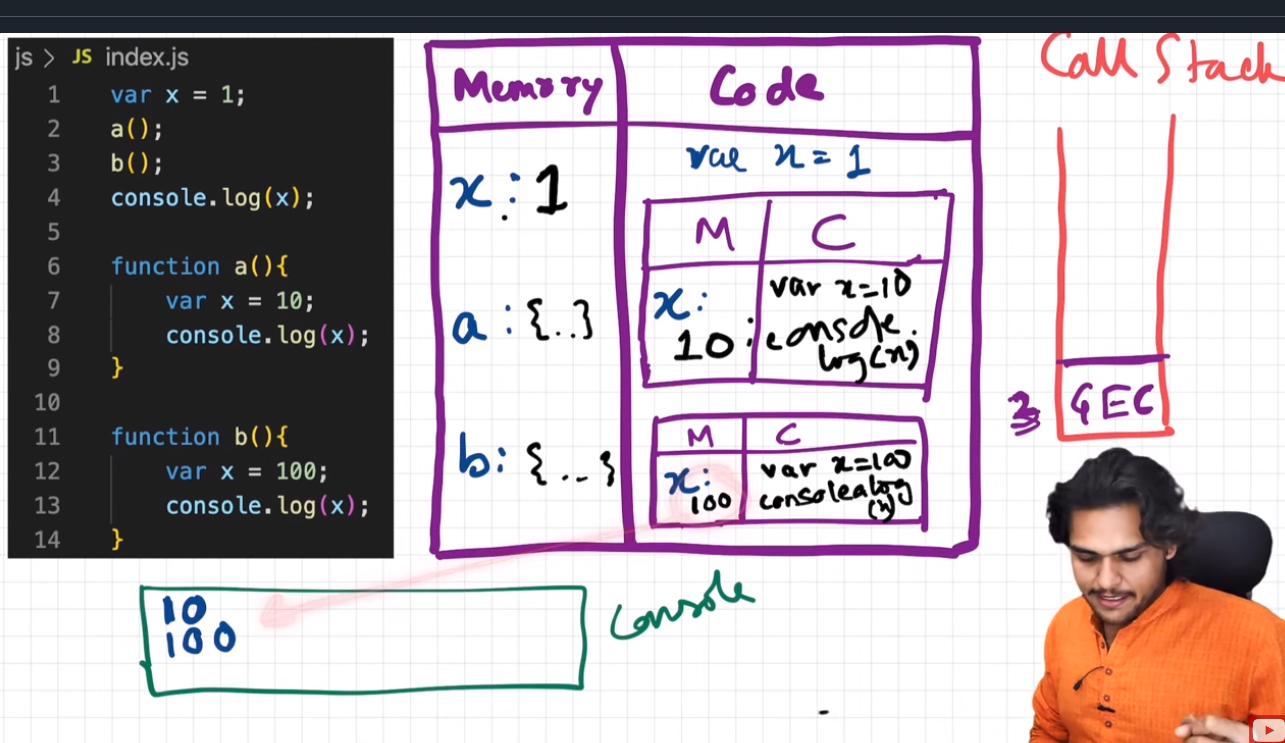 js > JS index.js
1 var x = 1;
2 a();
3 b();
4 console.log(x);
5
6 function a(){
7 var x = 10;
8 console.log(x);
9 }
10
11 function b(){
12 var x = 100;
13 console.log(x);
14 }
Memory
Code
x : 1
a : {..}
b: {...}
var x = 1
M
C
x:
10
var x=10
console.
log(x)
M
C
x:
100
var x=100
console.log
(x)
Call Stack
GEC
10
100
Console